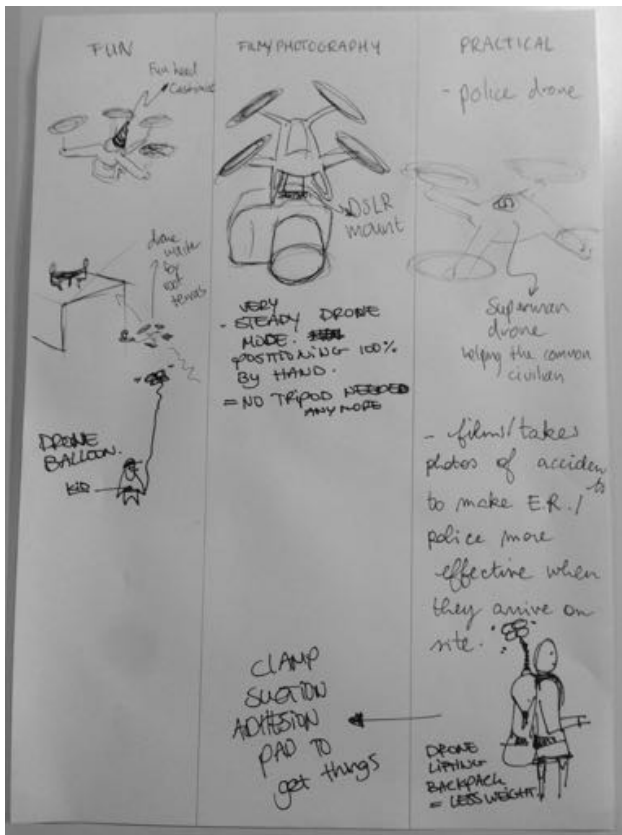 FUN
Fun head
drone
by
DRONE
BALLOON.
KID
FILM/PHOTOGRAPHY
DSLR
mount
VERY
- STEADY DRONE
MODE.
POSITIONING 100%
BY HAND.
= NO TRIPOD NEEDED
ANYMORE
CLAMP
SUCTION
ADHESION
PAD TO
get things
PRACTICAL
- police drone
Superman
drone
helping the common
civilian
- films/takes
photos of accidents
to make E.R./
police more
effective when
they arrive on
site.
DRONE
LIFTING
BACKPACK
= LESS WEIGHT.